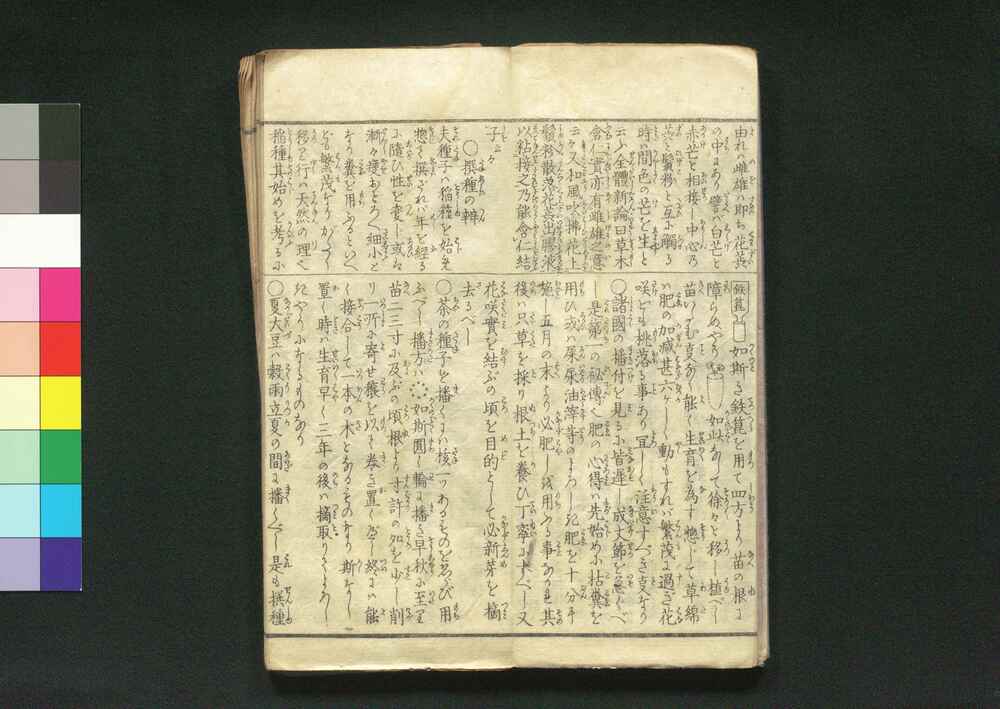 由れの雌雄ハ即ち花蕊
の中にあり譬バ白芒と
赤芒と相接し中心の
芒と鬚粉と互に觸る
時ハ間色の芒を生と
云ふ全體新論曰草木
含仁實亦有雌雄之意
云々又和風吹拂花上
鬚粉散落花蕊出膠液
以粘接之乃能含仁結
子々
〇撰種の辨
夫種子ハ稲種を始め
惣て撰ざれバ年を経る
に隨ひ性を変じ或ハ
漸々痩おとろへ細小と
なり糞を用ふるといへ
ども繁茂なりがたく
移り行ハ天然の理也
稲種其始めを考るに
鉄箆 如斯き鉄箆を用て四方より苗の根に
障らぬやう 如此あして徐々に移し植べし
苗いたむ支なく能く生育を為す惣じて草綿
ハ肥の加減甚六ヶしく動もすれバ繁茂に過ぎ花
咲ども桃落る事あり宜しく注意すべき支なり
〇諸國の播付を見るに皆遅し成丈節を急ぐべ
し是第一の秘傳也肥の心得ハ先始めに枯糞を
用ひ或ハ屎尿油滓等のよろしき肥を十分に
施し五月の末より必肥し浅用ふる事なかれ其
後ハ只草を採り根土を養ひ丁寧にすべし又
花咲實を結ぶの頃を目的として必新芽を摘
去るべし
〇茶の種子を播くにハ核一つあるものをゑらび用
ふべし播方ハ 如斯圓く輪に播き早秋に至り
苗二三寸に及ぶの頃根より寸許の処を少し削
り一所に寄せ蕷を以て巻き置くべし終にハ能
く接合して一本の木となるものなり斯なし
置く時ハ生育早く三年の後ハ摘取りてよろし
きやうになるものあり
〇夏大豆ハ穀雨立夏の間に播くべし是も撰種